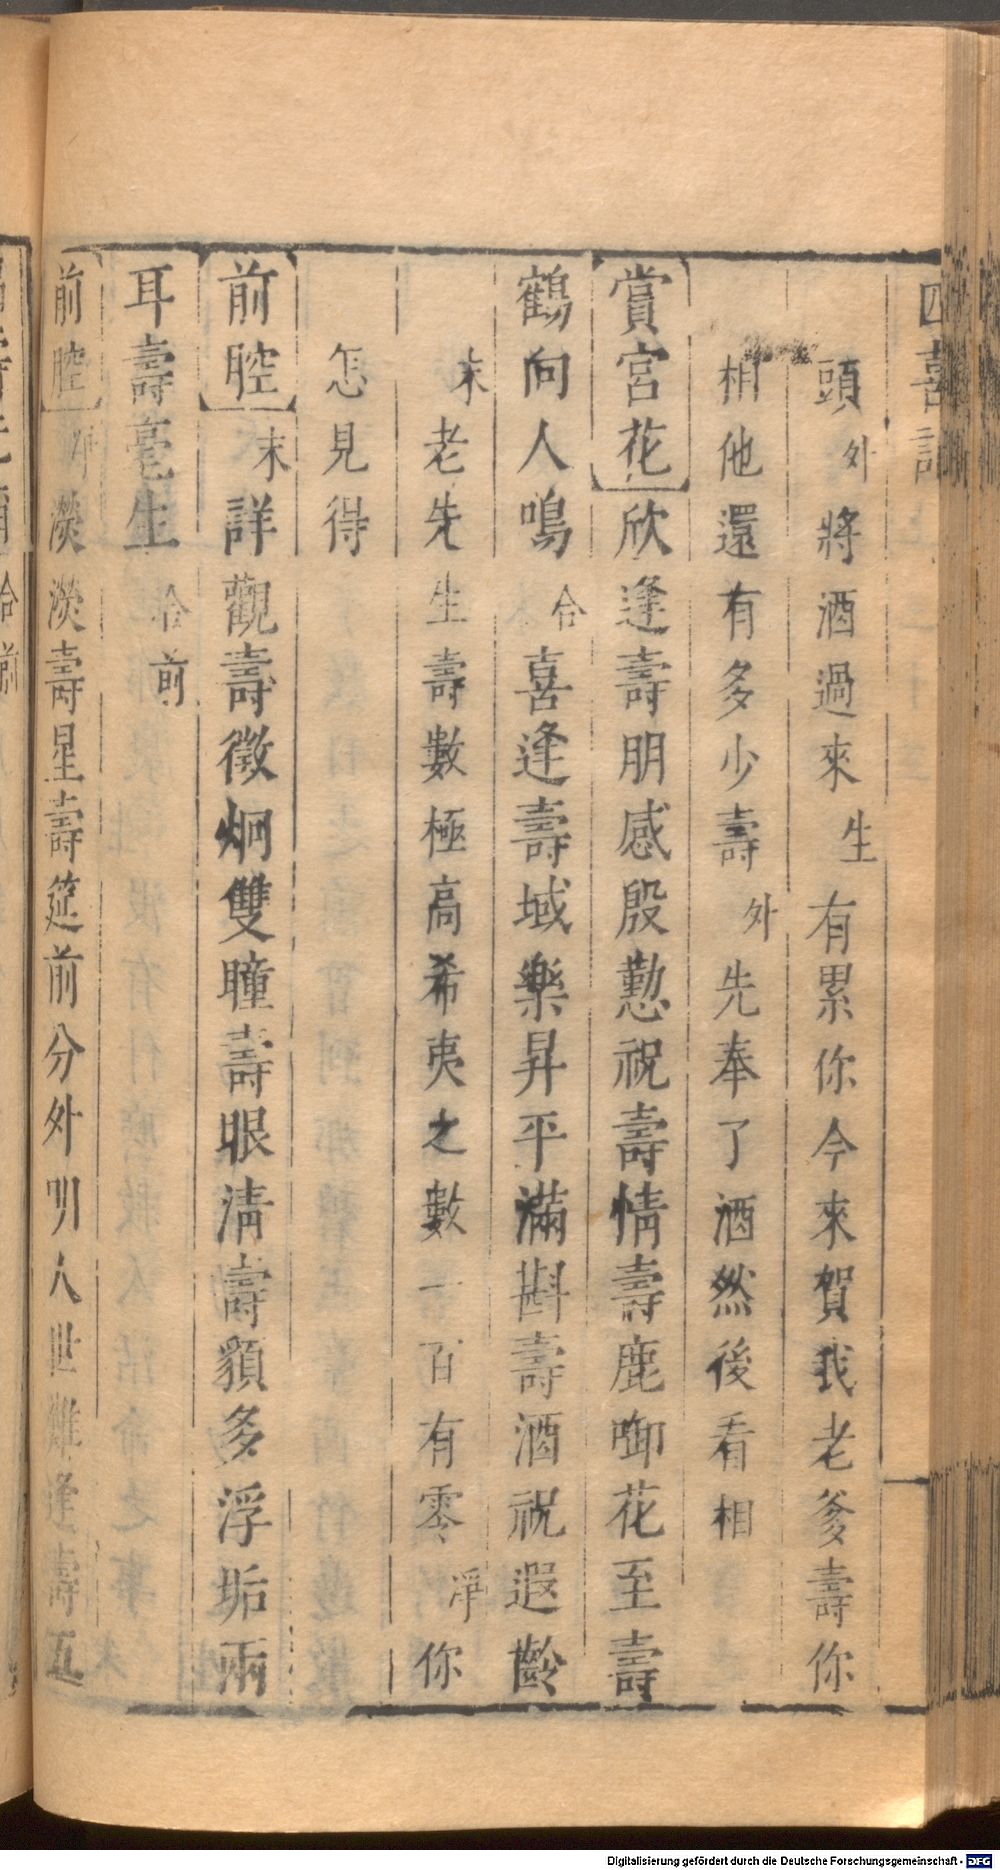 四喜記
頭外將酒過來生有累你今來賀我老爹壽你
相他還有多少壽外先奉了酒然後看相
賞宮花欣逢壽朋感殷懃祝壽情壽鹿啣花至壽
鶴向人鳴合喜逢壽域樂昇平滿斟壽酒祝遐齡
末老先生壽數極高希夷之數一百有零淨你
怎見得
前腔末詳觀壽徵炯雙瞳壽眼清壽額多浮垢兩
耳壽毫生合前
前腔淨瀅瀅壽星壽筵前分外明人世難逢壽五
合前
Digitalisierung gefördert durch die Deutsche Forschungsgemeinschaft - DFG